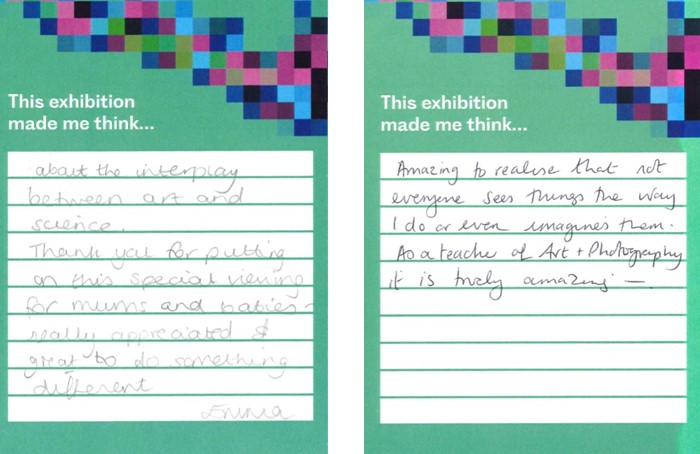 This exhibition
made me think...
about the interplay
between art and
science.
Thank you for putting
on this special viewing
for mums and babies -
really appreciated &
great to do something
different
Emma
This exhibition
made me think...
Amazing to realise that not
everyone sees things the way
I do or even imagines them.
As a teacher of Art + Photography
it is truely amazing —.